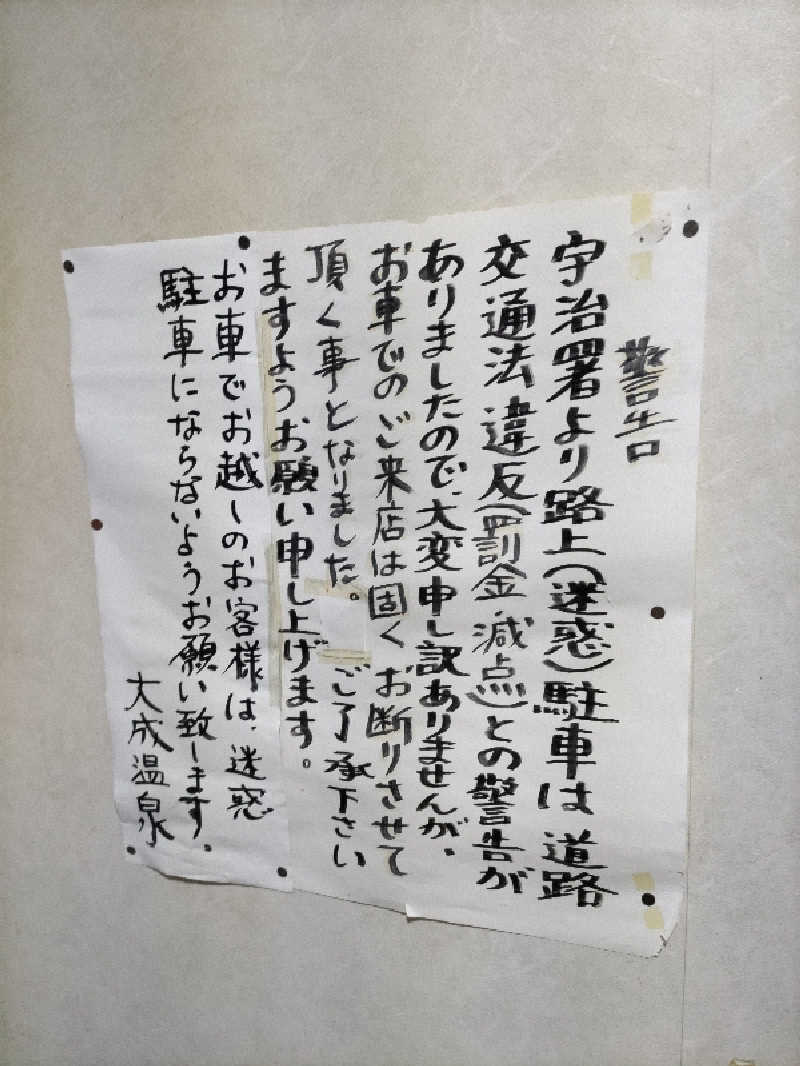 警告
宇治署より路上(迷惑)駐車は道路
交通法違反(罰金・減点)との警告が
ありましたので、大変申し訳ありませんが、
お車でのご来店は固くお断りさせて
頂く事となりました。ご了承下さい
ますようお願い申し上げます。
お車でお越しのお客様は、迷惑
駐車にならないようお願い致します。
大成温泉